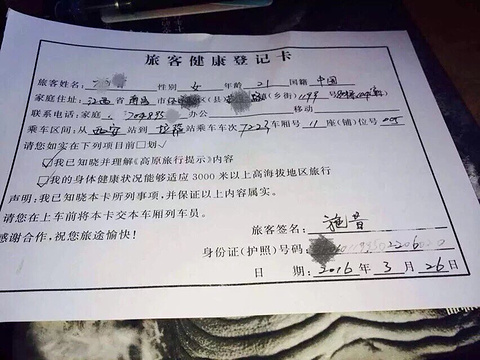 旅客健康登记卡
旅客姓名: 性别 女 年龄 21 国籍 中国
家庭住址: 江西 省 南昌 市 区(县) (乡街) 号
联系电话:家庭 办公 移动
乘车区间:从 西安 站到 拉萨 站乘车车次 车厢号 11 座(铺)位号
请您如实在下列项目前□划√
我已知晓并理解《高原旅行提示》内容
我的身体健康状况能够适应3000米以上高海拔地区旅行
声明:我已知晓本卡所列事项,并保证以上内容属实。
请您在上车前将本卡交本车厢列车员。
感谢合作,祝您旅途愉快!
旅客签名:
身份证(护照)号码:
日 期: 2016 年 3 月 26 日